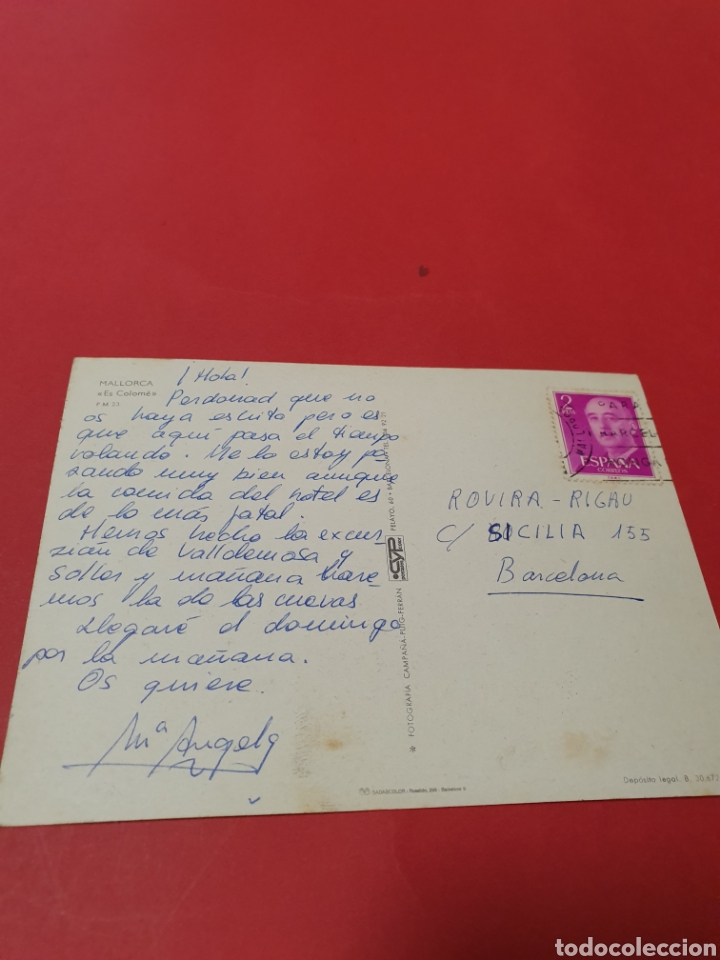 MALLORCA
«Es Colomé»
F M 25
¡Hola!
Perdonad que no
os haya escrito pero es
que aquí pasa el tiempo
volando. Me lo estoy pa
sando muy bien aunque
la comida del hotel es
de lo más fatal.
Hemos hecho la excur
sión de Valldemosa y
Soller y mañana hare-
mos la de las cuevas.
Llegaré el domingo
por la mañana.
Os quiere.
Mª Angels
FOTOGRAFIA CAMPAÑA-PUIG-FERRAN
CYP
PELAYO, 60 • BARCELONA
2
ESPAÑA
CORREOS
ROVIRA-RIGAU
C/ SICILIA 155
Barcelona
Depósito legal. B. 30.673
CASACOLOR
Barcelona
todocoleccion